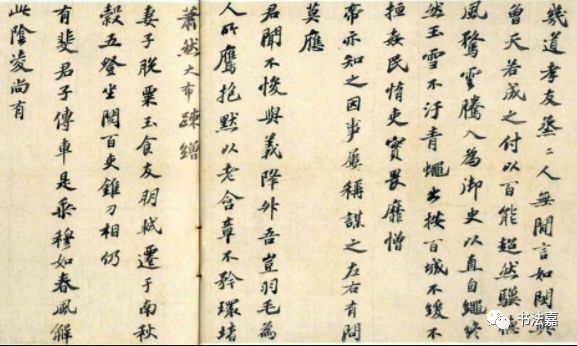 幾道孝友烝二人無間言如閔與
曾天若成之付以百能超然驥德
風騖雲騰入為御史以直自繩終
然玉雪不汙青蠅出按百城不緩不
絙姦民惰吏實畏靡憎
帝亦知之因事屢稱謀之左右有問
莫應
君聞不悛與義降升吾豈羽毛為
人所鷹抱默以老含章不矜環堵
蕭然大布疎繒
妻子脫粟玉食友朋軾遷于南秋
穀五登坐閱百吏錐刀相仍
有斐君子傳車是乘穆如春風解
此陰凌尚有
书法嘉